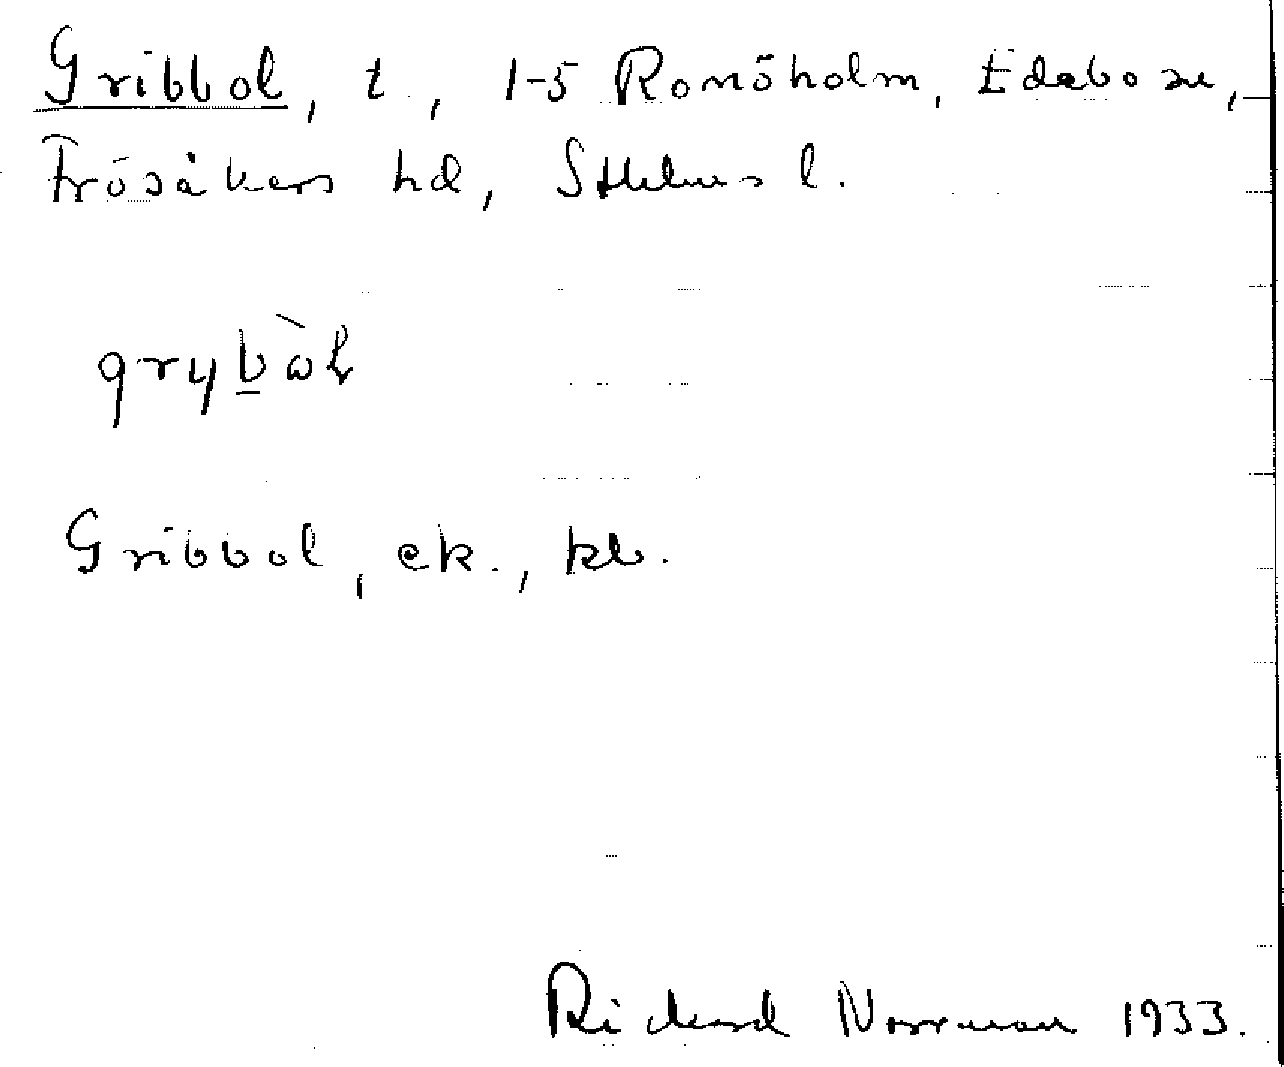 Gribbol, t., 1-5 Ronöholm, Edebo sn,
Frösåkers hd, Sthlms l.
grybòl
Gribbol, ek., kb.
Rickard Norrman 1933.